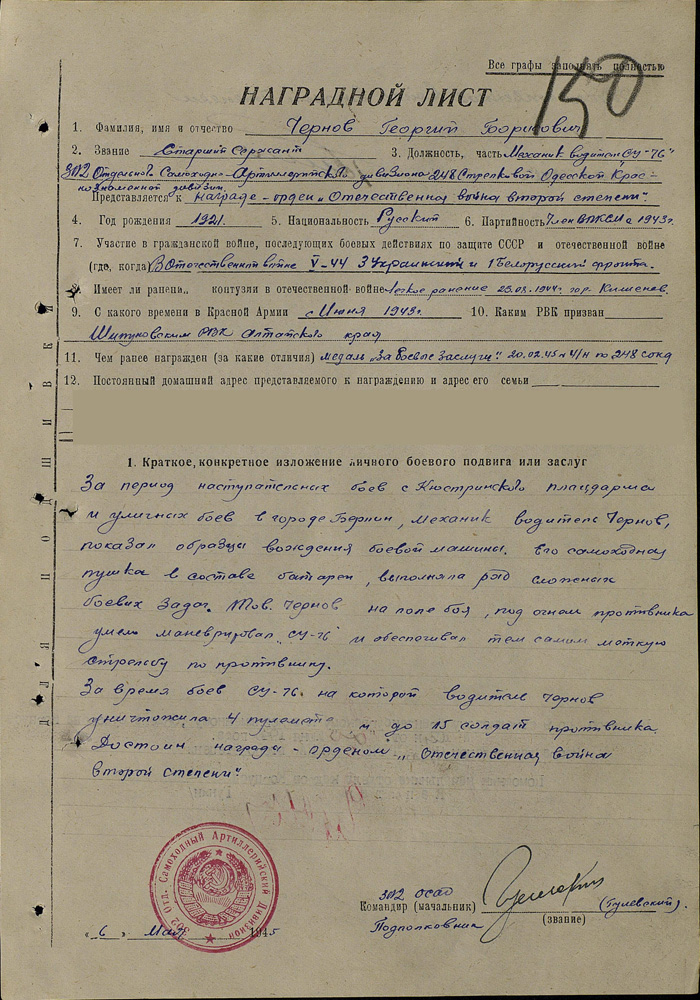 Все графы заполнять полностью
150
НАГРАДНОЙ ЛИСТ
1. Фамилия, имя и отчество Чернов Георгий Борисович
2. Звание Старший Сержант 3. Должность, часть Механик водитель СУ-76"
302 Отдельного Самоходно-Артиллерийского дивизиона 248 Стрелковой Одесской Крас-
нознаменной дивизии.
Представляется к награде - орден "Отечественная война второй степени".
4. Год рождения 1921. 5. Национальность Русский 6. Партийность Член ВЛКСМ с 1943г.
7. Участие в гражданской войне, последующих боевых действиях по защите СССР и отечественной войне
(где, когда) В Отечественной войне V-44 3 Украинский и 1 Белорусский фронта.
8. Имеет ли ранен.. контузии в отечественной войне Легкое ранение 23.08.1944г. гор. Кишенев.
9. С какого времени в Красной Армии с Июня 1943г. 10. Каким РВК призван
Шипуновским РВК Алтайского края
11. Чем ранее награжден (за какие отличия) медаль "За боевые заслуги". 20.02.45г Ч/Н по 248 сокд
12. Постоянный домашний адрес представляемого к награждению и адрес его семьи
ДЛЯ ПОДШИВКИ
1. Краткое, конкретное изложение личного боевого подвига или заслуг
За период наступательных боев с Кюстринского плацдарма
и уличных боев в городе Берлин, механик водитель Чернов,
показал образцы вождения боевой машины. Его самоходная
пушка в составе батареи, выполняла ряд сложных
боевых задач. Тов. Чернов на поле боя, под огнем противника
умело маневрировал "СУ-76" и обеспечивал тем самым меткую
стрельбу по противнику.
За время боев СУ-76. на которой водитель Чернов
уничтожила 4 пулемета и до 15 солдат противника.
Достоин награды - орденом "Отечественная война
второй степени"
302 Отд. Самоходный Артиллерийский Дивизион
302 осад
Командир (начальник) (Гулевский).
(звание)
Подполковник
"6" Мая 1945